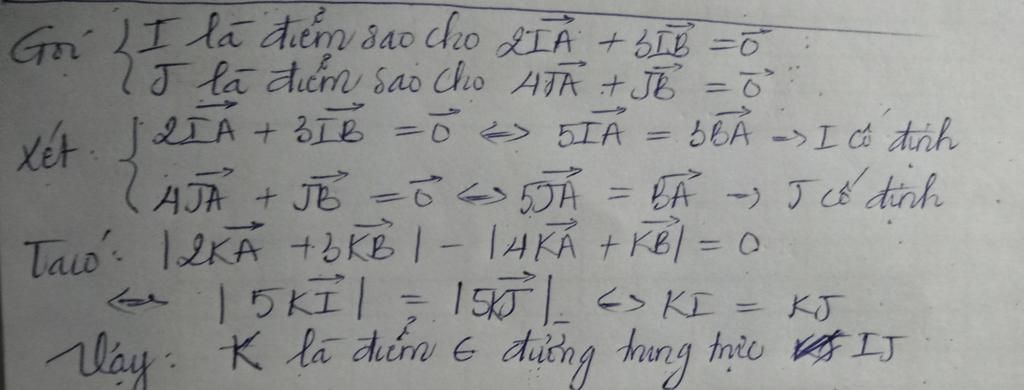 Gọi { I là điểm sao cho 2\overrightarrow{IA} + 3\overrightarrow{IB} = \overrightarrow{0}
J là điểm sao cho 4\overrightarrow{JA} + \overrightarrow{JB} = \overrightarrow{0}
Xét. { 2\overrightarrow{IA} + 3\overrightarrow{IB} = \overrightarrow{0} ⇔ 5\overrightarrow{IA} = 3\overrightarrow{BA} → I cố định
4\overrightarrow{JA} + \overrightarrow{JB} = \overrightarrow{0} ⇔ 5\overrightarrow{JA} = \overrightarrow{BA} → J cố định
Ta có: |2\overrightarrow{KA} + 3\overrightarrow{KB}| - |4\overrightarrow{KA} + \overrightarrow{KB}| = 0
⇔ |5\overrightarrow{KI}| = |5\overrightarrow{KJ}| ⇔ KI = KJ
Vậy: K là điểm ∈ đường trung trực IJ